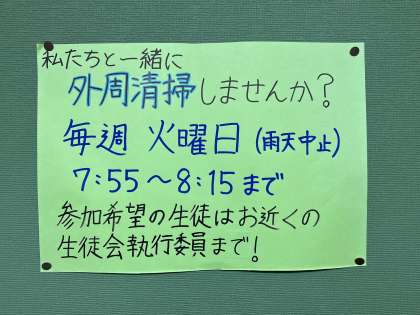 私たちと一緒に
外周清掃しませんか?
毎週 火曜日(雨天中止)
7:55～8:15まで
参加希望の生徒はお近くの
生徒会執行委員まで!